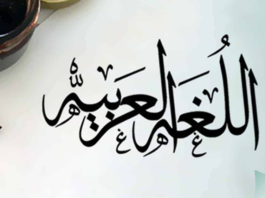 اللُغَه العَربيه